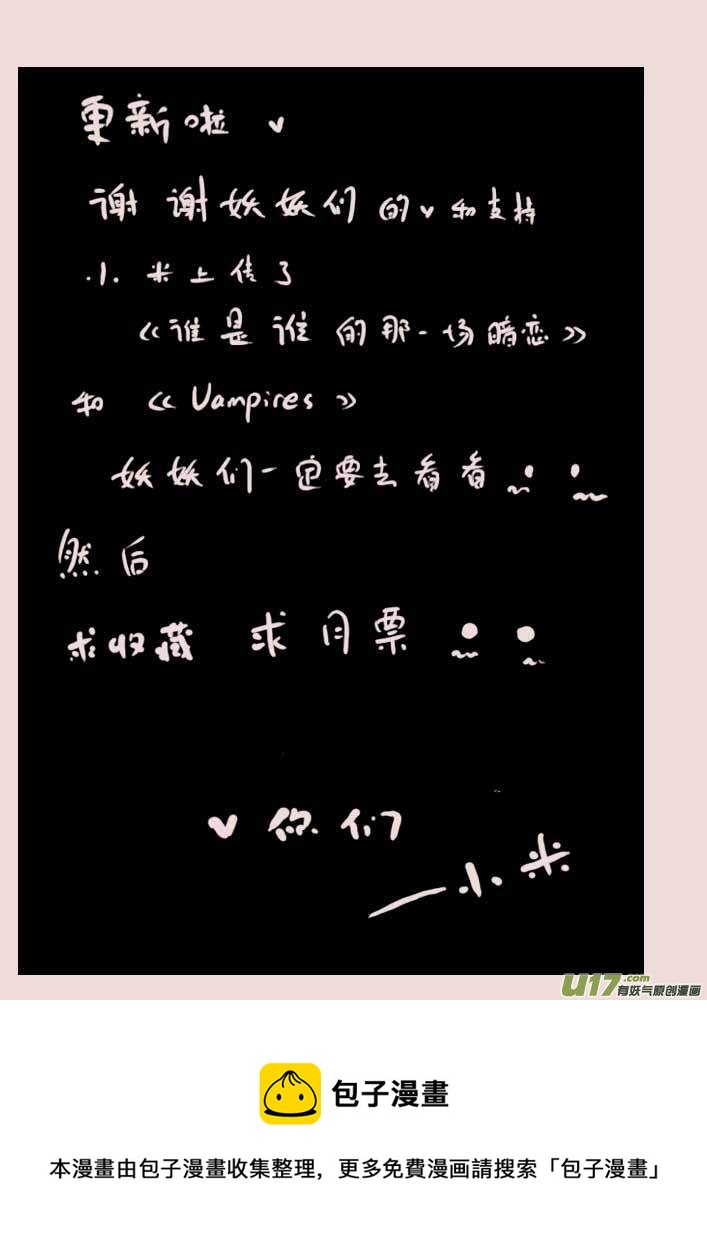 更新啦 ♥
谢谢妖妖们的♥和支持
小米上传了
《谁是谁的那一场暗恋》
和《Vampires》
妖妖们一定要去看看
然后
求收藏 求月票
♥你们
——小米
U17.com
有妖气原创漫画
包子漫畫
本漫畫由包子漫畫收集整理，更多免費漫画請搜索「包子漫畫」